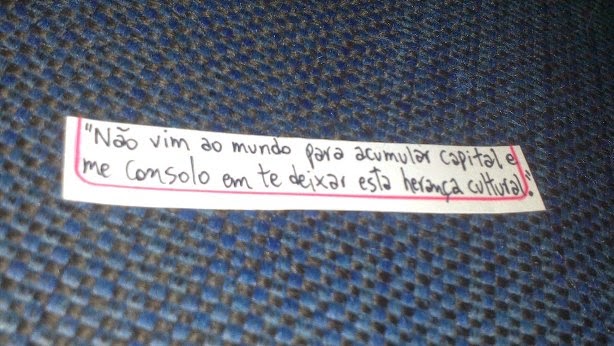 "Não vim ao mundo para acumular capital e
me consolo em te deixar esta herança cultural".